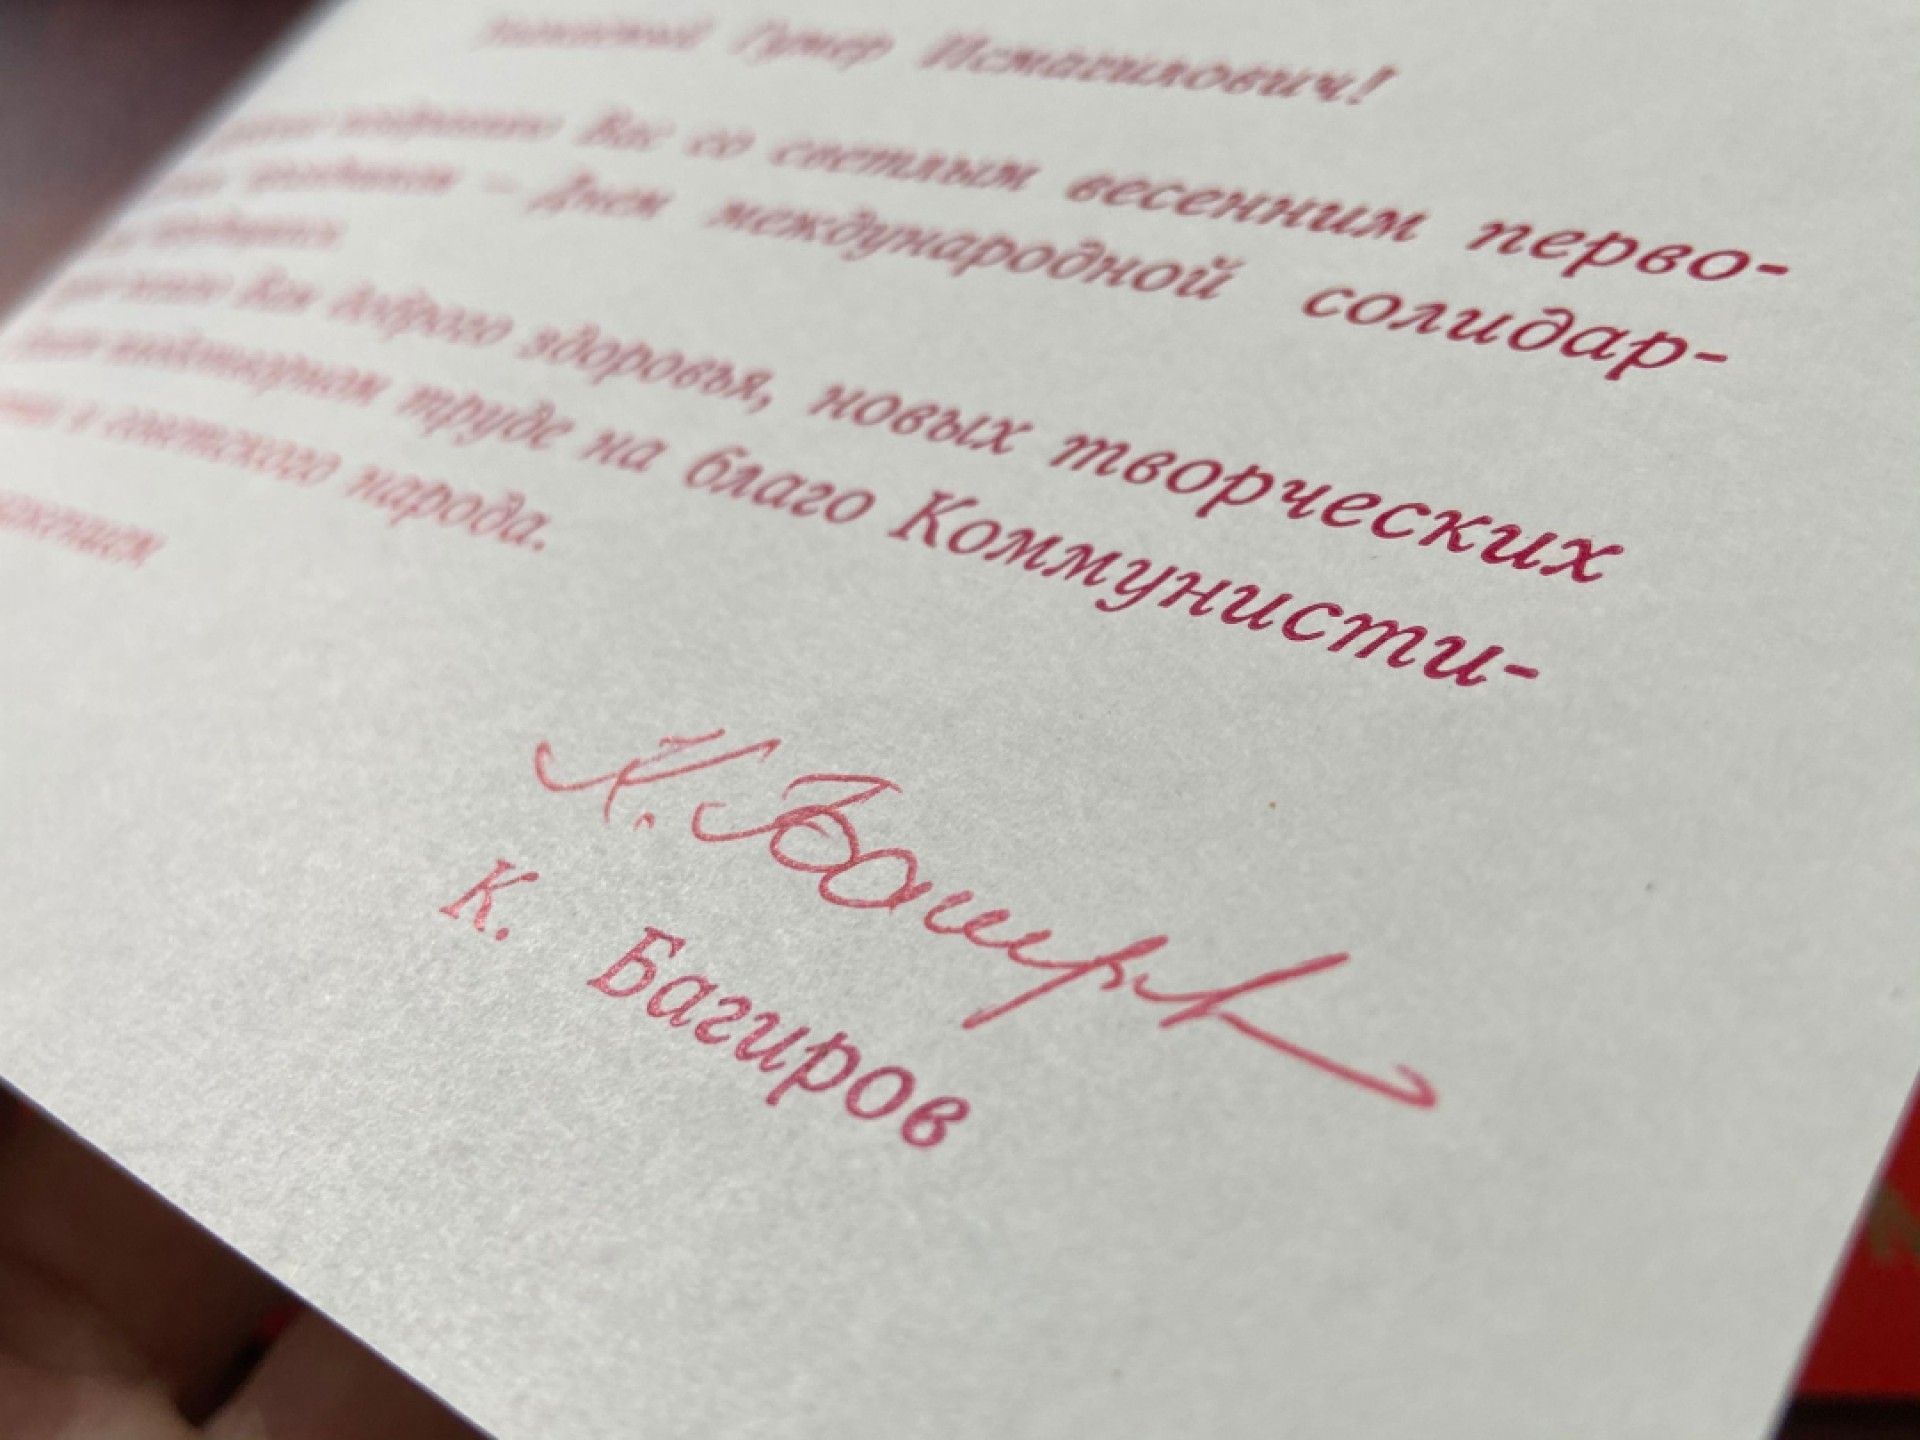 Гумер Исмагилович!
Вас со светлым весенним перво-
праздником – Днем международной солидар-
трудящихся.
Вам доброго здоровья, новых творческих
плодотворном труде на благо Коммунисти-
и советского народа.
К. Багиров
К. Багиров